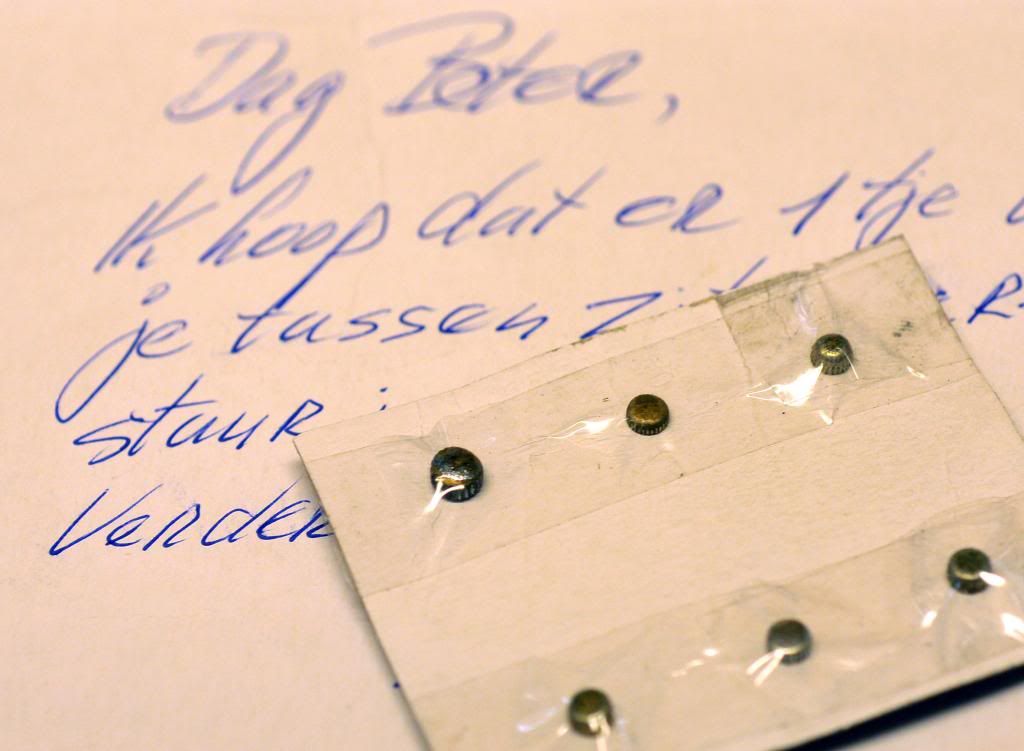 Dag Peter,
Ik hoop dat er 1 tje
je tussen
stuur
Verder